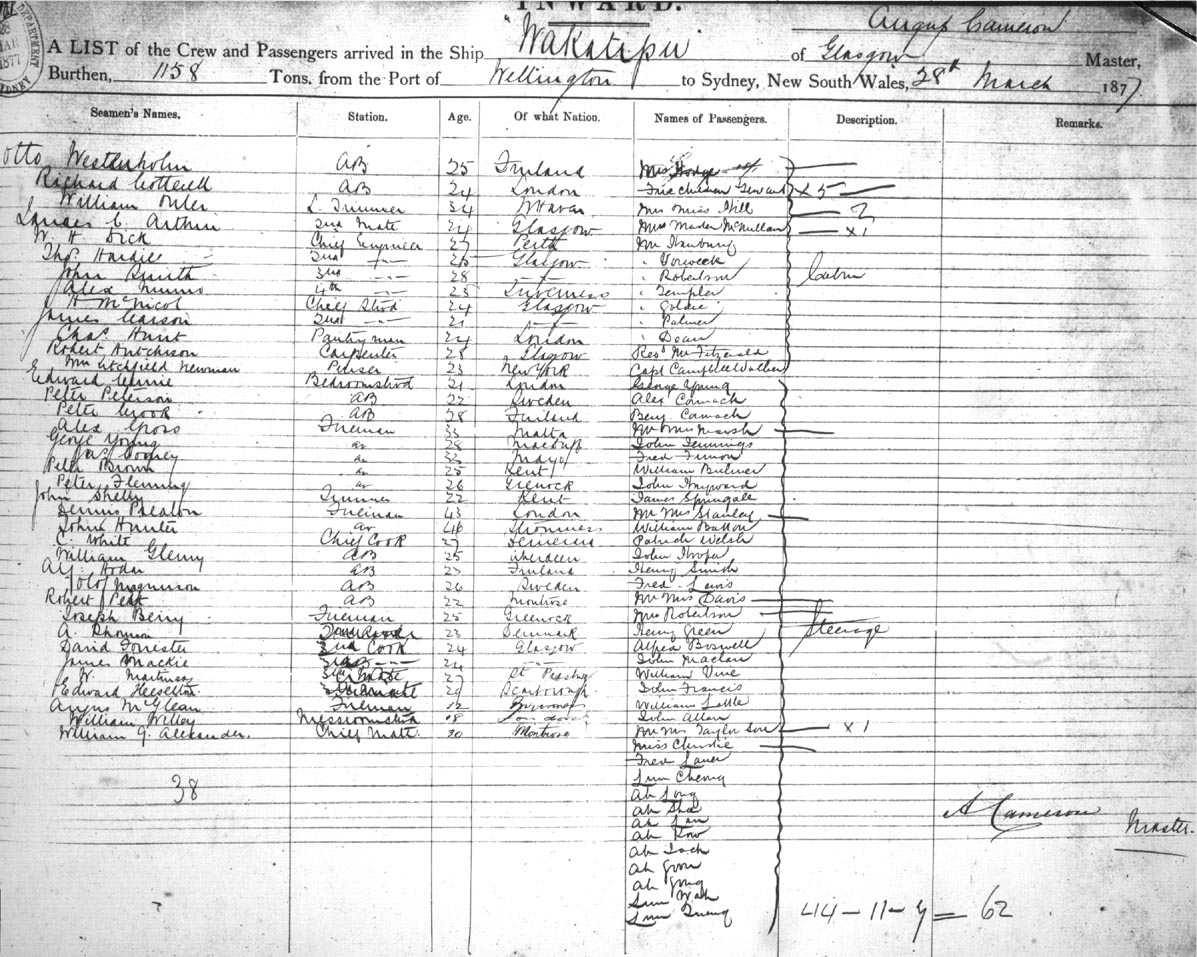 INWARD.
Angus Cameron
A LIST of the Crew and Passengers arrived in the Ship "Wakatipu" of Glasgow Master,
Burthen, 1158 Tons. from the Port of Wellington to Sydney, New South Wales, 28th March 1877
Seamen's Names. Station. Age. Of what Nation. Names of Passengers. Description. Remarks.
Otto Westerholm AB 25 Finland Mrs Hodge
Richard Cotterell AB 24 London x 5
William 34 Mrs Miss Hill 2
Arthur 2nd Mate 24 Glasgow McMullan x 1
W. H. Dick Chief Engineer 27 Perth Mr Hanbury
Thos. Hardie 2nd 25 Glasgow " Vorweck
John Smith 3rd 28 " Robertson Cabin
Alex 4th 23 Inverness " Templer
H McNicol Chief Stwd 24 Glasgow " Goldie
James 2nd 21 " Palmer
Chas. Hunt Pantryman 24 London " Dean
Robert Hutchison Carpenter 28 Glasgow Revd Mr Fitzgerald
Wm Litchfield Newman Purser 23 New York Capt Campbell Walker
Edward Bedroomstwd 21 London George Young
Peter Peterson AB 22 Sweden Alex Comach
Peter Crook AB 28 Finland Benj Comach
Alex Gross Fireman 33 Malta Mr Mrs Marsh
George Young do 28 Macduff John Jennings
Jas. Cooney do 32 Mayo Fred
Peter Brown do 25 Kent William Bulmer
Peter Fleming do 26 Grenock John Hayward
John Shelby Trimmer 22 Kent James Springall
Dennis Fireman 43 London Mr Mrs Stanley
John Hunter do 46 William
C. White Chief Cook 27 Patrick Welsh
William Glenny AB 25 Aberdeen John
AB 23 Finland Henry Smith
Olof Magnuson AB 26 Sweden Fred Lewis
Robert Peat AB 22 Montrose Mr Mrs Davis
Joseph Berry Fireman 25 Greenock Mrs Robertson
A. 23 Denmark Henry Green Steerage
David Forrester 2nd Cook 24 Glasgow Alfred Boswell
James Mackie 24 John
W. 27 William Vine
Edward 29 Scarborough John Francis
Angus McGlean Fireman William Little
William Willey Messroomstwd 18 London John Allan
William G. Alexander. Chief Mate. 30 Montrose Mr Mrs Taylor Son x 1
Miss Christie
Fred
Sum Cheong
38 Ah Long
Ah
Ah A Cameron
Ah Kow Master.
Ah
Ah Goon
Ah Gong
Sum Wah
Sum 44 - 11 - 7 = 62